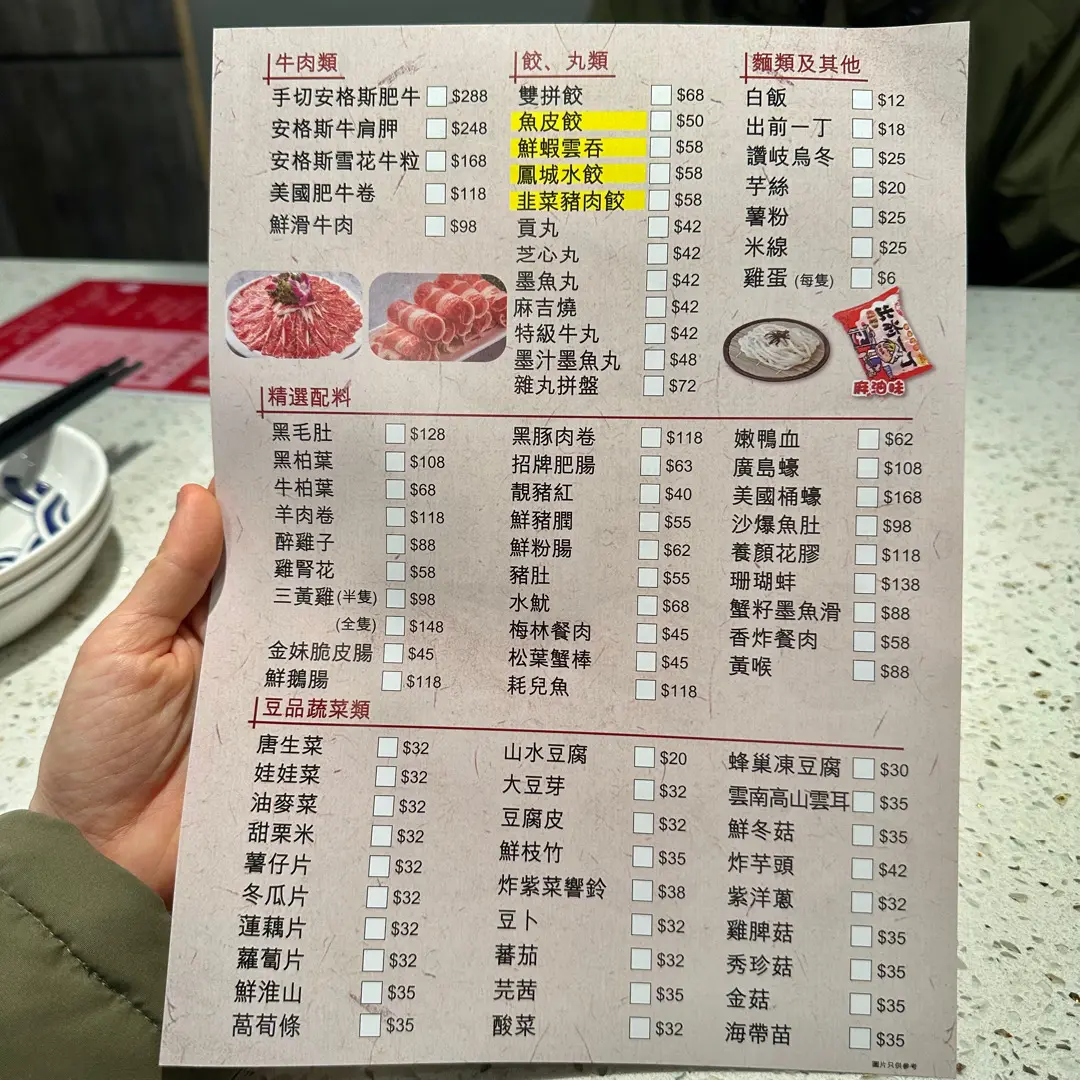 牛肉類
手切安格斯肥牛 $288
安格斯牛肩胛 $248
安格斯雪花牛粒 $168
美國肥牛卷 $118
鮮滑牛肉 $98
餃、丸類
雙拼餃 $68
魚皮餃 $50
鮮蝦雲吞 $58
鳳城水餃 $58
韭菜豬肉餃 $58
貢丸 $42
芝心丸 $42
墨魚丸 $42
麻吉燒 $42
特級牛丸 $42
墨汁墨魚丸 $48
雜丸拼盤 $72
麵類及其他
白飯 $12
出前一丁 $18
讚岐烏冬 $25
芋絲 $20
薯粉 $25
米線 $25
雞蛋 (每隻) $6
出前一丁
麻油味
精選配料
黑毛肚 $128
黑柏葉 $108
牛柏葉 $68
羊肉卷 $118
醉雞子 $88
雞腎花 $58
三黃雞 (半隻) $98
(全隻) $148
金妹脆皮腸 $45
鮮鵝腸 $118
黑豚肉卷 $118
招牌肥腸 $63
靚豬紅 $40
鮮豬膶 $55
鮮粉腸 $62
豬肚 $55
水魷 $68
梅林餐肉 $45
松葉蟹棒 $45
耗兒魚 $118
嫩鴨血 $62
廣島蠔 $108
美國桶蠔 $168
沙爆魚肚 $98
養顏花膠 $118
珊瑚蚌 $138
蟹籽墨魚滑 $88
香炸餐肉 $58
黃喉 $88
豆品蔬菜類
唐生菜 $32
娃娃菜 $32
油麥菜 $32
甜粟米 $32
薯仔片 $32
冬瓜片 $32
蓮藕片 $32
蘿蔔片 $32
鮮淮山 $35
萵筍條 $35
山水豆腐 $20
大豆芽 $32
豆腐皮 $32
鮮枝竹 $35
炸紫菜響鈴 $38
豆卜 $32
蕃茄 $32
芫茜 $35
酸菜 $32
蜂巢凍豆腐 $30
雲南高山雲耳 $35
鮮冬菇 $35
炸芋頭 $42
紫洋蔥 $32
雞脾菇 $35
秀珍菇 $35
金菇 $35
海帶苗 $35
圖片只供參考